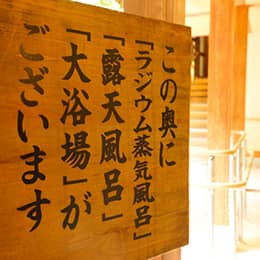 この奥に
「ラジウム蒸気風呂」
「露天風呂」
「大浴場」が
ございます